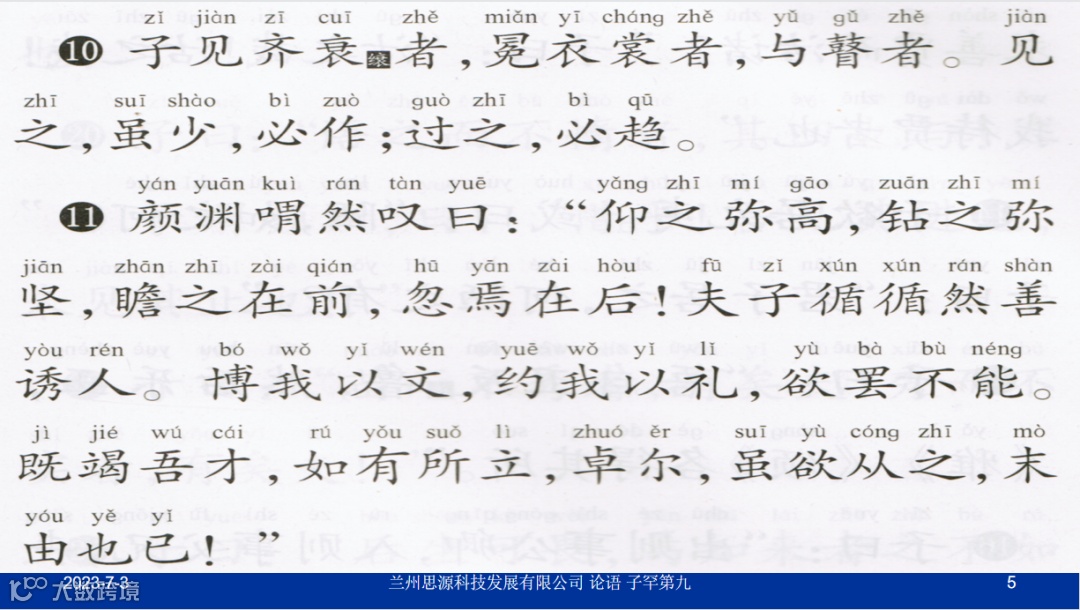 zǐ jiàn zī cuī zhě miǎn yī cháng zhě yǔ gǔ zhě jiàn
❿ 子见齐衰者，冕衣裳者，与瞽者。见
zhī suī shào bì zuò guò zhī bì qū
之，虽少，必作；过之，必趋。
yán yuān kuì rán tàn yuē yǎng zhī mí gāo zuān zhī mí
⓫ 颜渊喟然叹曰：“仰之弥高，钻之弥
jiān zhān zhī zài qián hū yān zài hòu fū zǐ xún xún rán shàn
坚，瞻之在前，忽焉在后！夫子循循然善
yòu rén bó wǒ yǐ wén yuē wǒ yǐ lǐ yù bà bù néng
诱人。博我以文，约我以礼，欲罢不能。
jì jié wú cái rú yǒu suǒ lì zhuó ěr suī yù cóng zhī mò
既竭吾才，如有所立，卓尔，虽欲从之，末
yóu yě yǐ
由也已！”
2023-7-3 兰州思源科技发展有限公司 论语 子罕第九 5
大数跨境